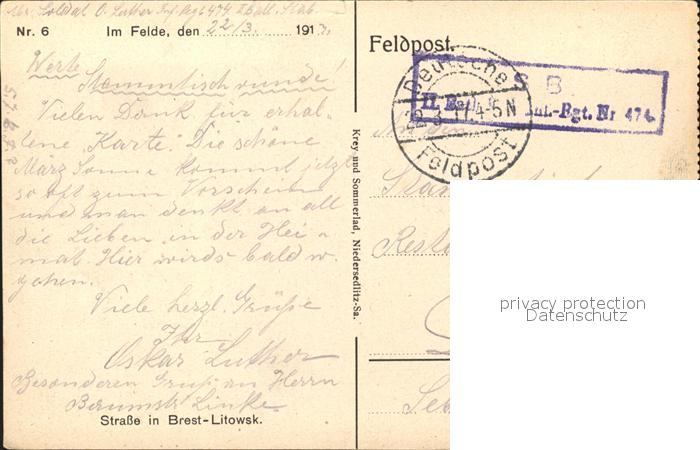 Soldat O. Luther Inf. Rg. 474 II Batl. Stab.
Nr. 6 Im Felde, den 22/3. 1917.
Werte
Stammtischrunde!
Vielen Dank für erhal-
tene Karte. Die schöne
März Sonne kommt jetzt
so oft zum Vorschein
und man denkt an all
die Lieben in der Hei-
mat. Hier wirds bald w.
gehen.
Viele herzl. Grüße
Ihr
Oskar Luther
Besonderen Gruß an Herrn
Baumstr. Linke.
Straße in Brest-Litowsk.
Krey und Sommerlad, Niedersedlitz-Sa.
Feldpost.
Deutsche
3 17 4-5N
Feldpost
S. B.
II. Batl. Inf.-Rgt. Nr 474.
privacy protection
Datenschutz